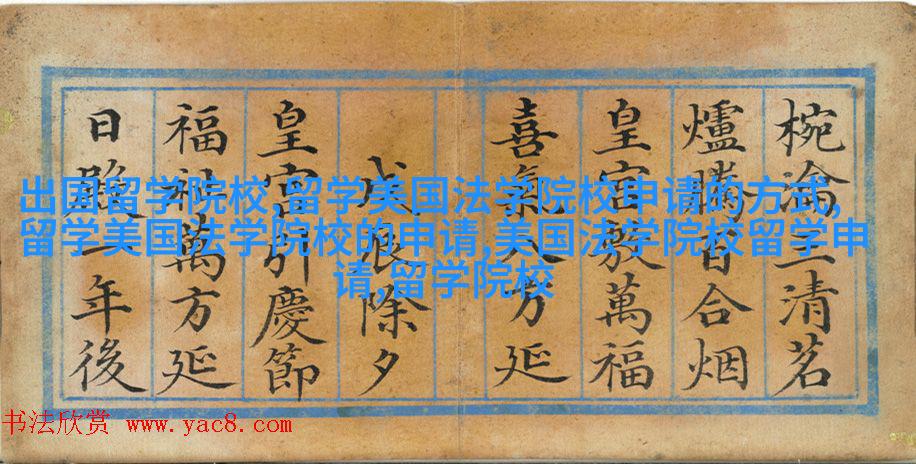 椀瀹三清茗
爐騰百合烟
皇宮敷萬福
喜氣八方延
戊除夕
皇宮引慶節
福祉萬方延
日一年後
出国留学院校,留学美国法学院校申请的方式,
留学美国法学院校的申请,美国法学院校留学申
请,留学院校
书法欣赏 www.yac8.com